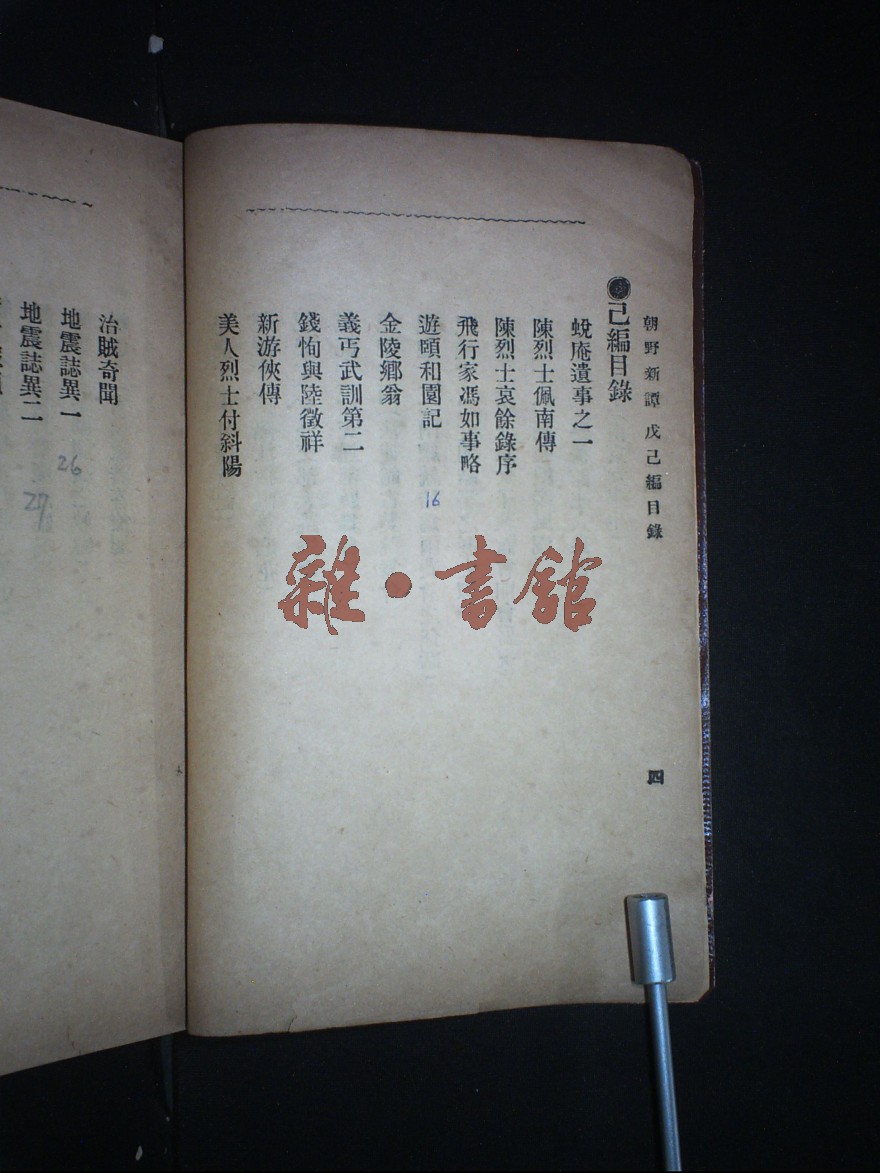 朝野新譚 戊己編目錄
四
己編目錄
蛻庵遺事之一
陳烈士佩南傳
陳烈士哀餘錄序
飛行家馮如事略
遊頤和園記
16
金陵鄉翁
義丐武訓第二
錢恂與陸徵祥
新游俠傳
美人烈士付斜陽
治賊奇聞
地震誌異一
26
地震誌異二
27
雜·書館